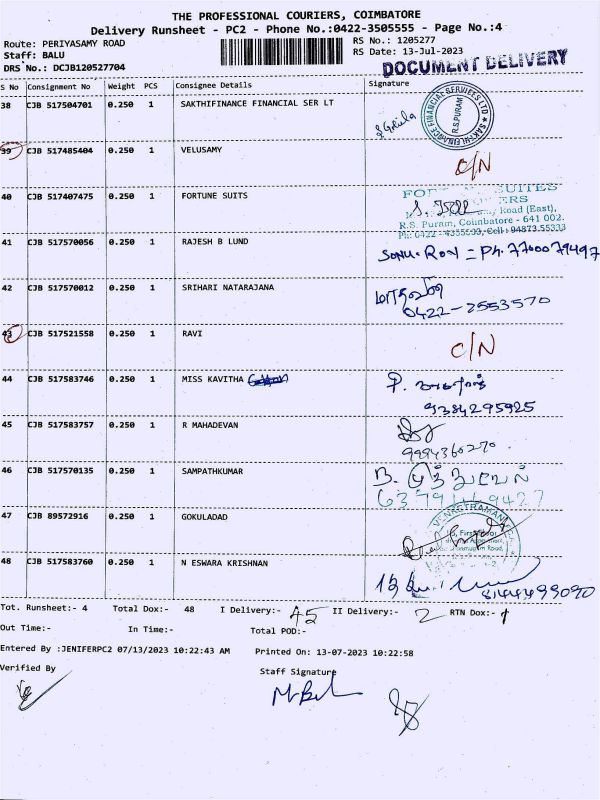 THE PROFESSIONAL COURIERS, COIMBATORE
Delivery Runsheet - PC2 - Phone No.:0422-3505555 - Page No.:4
Route: PERIYASAMY ROAD
RS No.: 1205277
Staff: BALU
RS Date: 13-Jul-2023
DRS No.: DCJB120527704
DOCUMENT DELIVERY
S No Consignment No Weight PCS Consignee Details Signature
38 CJB 517504701 0.250 1 SAKTHIFINANCE FINANCIAL SER LT
SAKTHI FINANCE FINANCIAL SERVICES LTD
R.S.PURAM
39 CJB 517485404 0.250 1 VELUSAMY C/N
40 CJB 517407475 0.250 1 FORTUNE SUITS
Road (East),
R.S. Puram, Coimbatore - 641 002.
41 CJB 517570056 0.250 1 RAJESH B LUND
42 CJB 517570012 0.250 1 SRIHARI NATARAJANA
0422-2553570
43 CJB 517521558 0.250 1 RAVI C/N
44 CJB 517583746 0.250 1 MISS KAVITHA
9384295925
45 CJB 517583757 0.250 1 R MAHADEVAN
9994360270
46 CJB 517570135 0.250 1 SAMPATHKUMAR
47 CJB 89572916 0.250 1 GOKULADAD
48 CJB 517583760 0.250 1 N ESWARA KRISHNAN
Tot. Runsheet:- 4 Total Dox:- 48 I Delivery:- 45 II Delivery:- 2 RTN Dox:- 1
Out Time:- In Time:- Total POD:-
Entered By :JENIFERPC2 07/13/2023 10:22:43 AM Printed On: 13-07-2023 10:22:58
Verified By Staff Signature